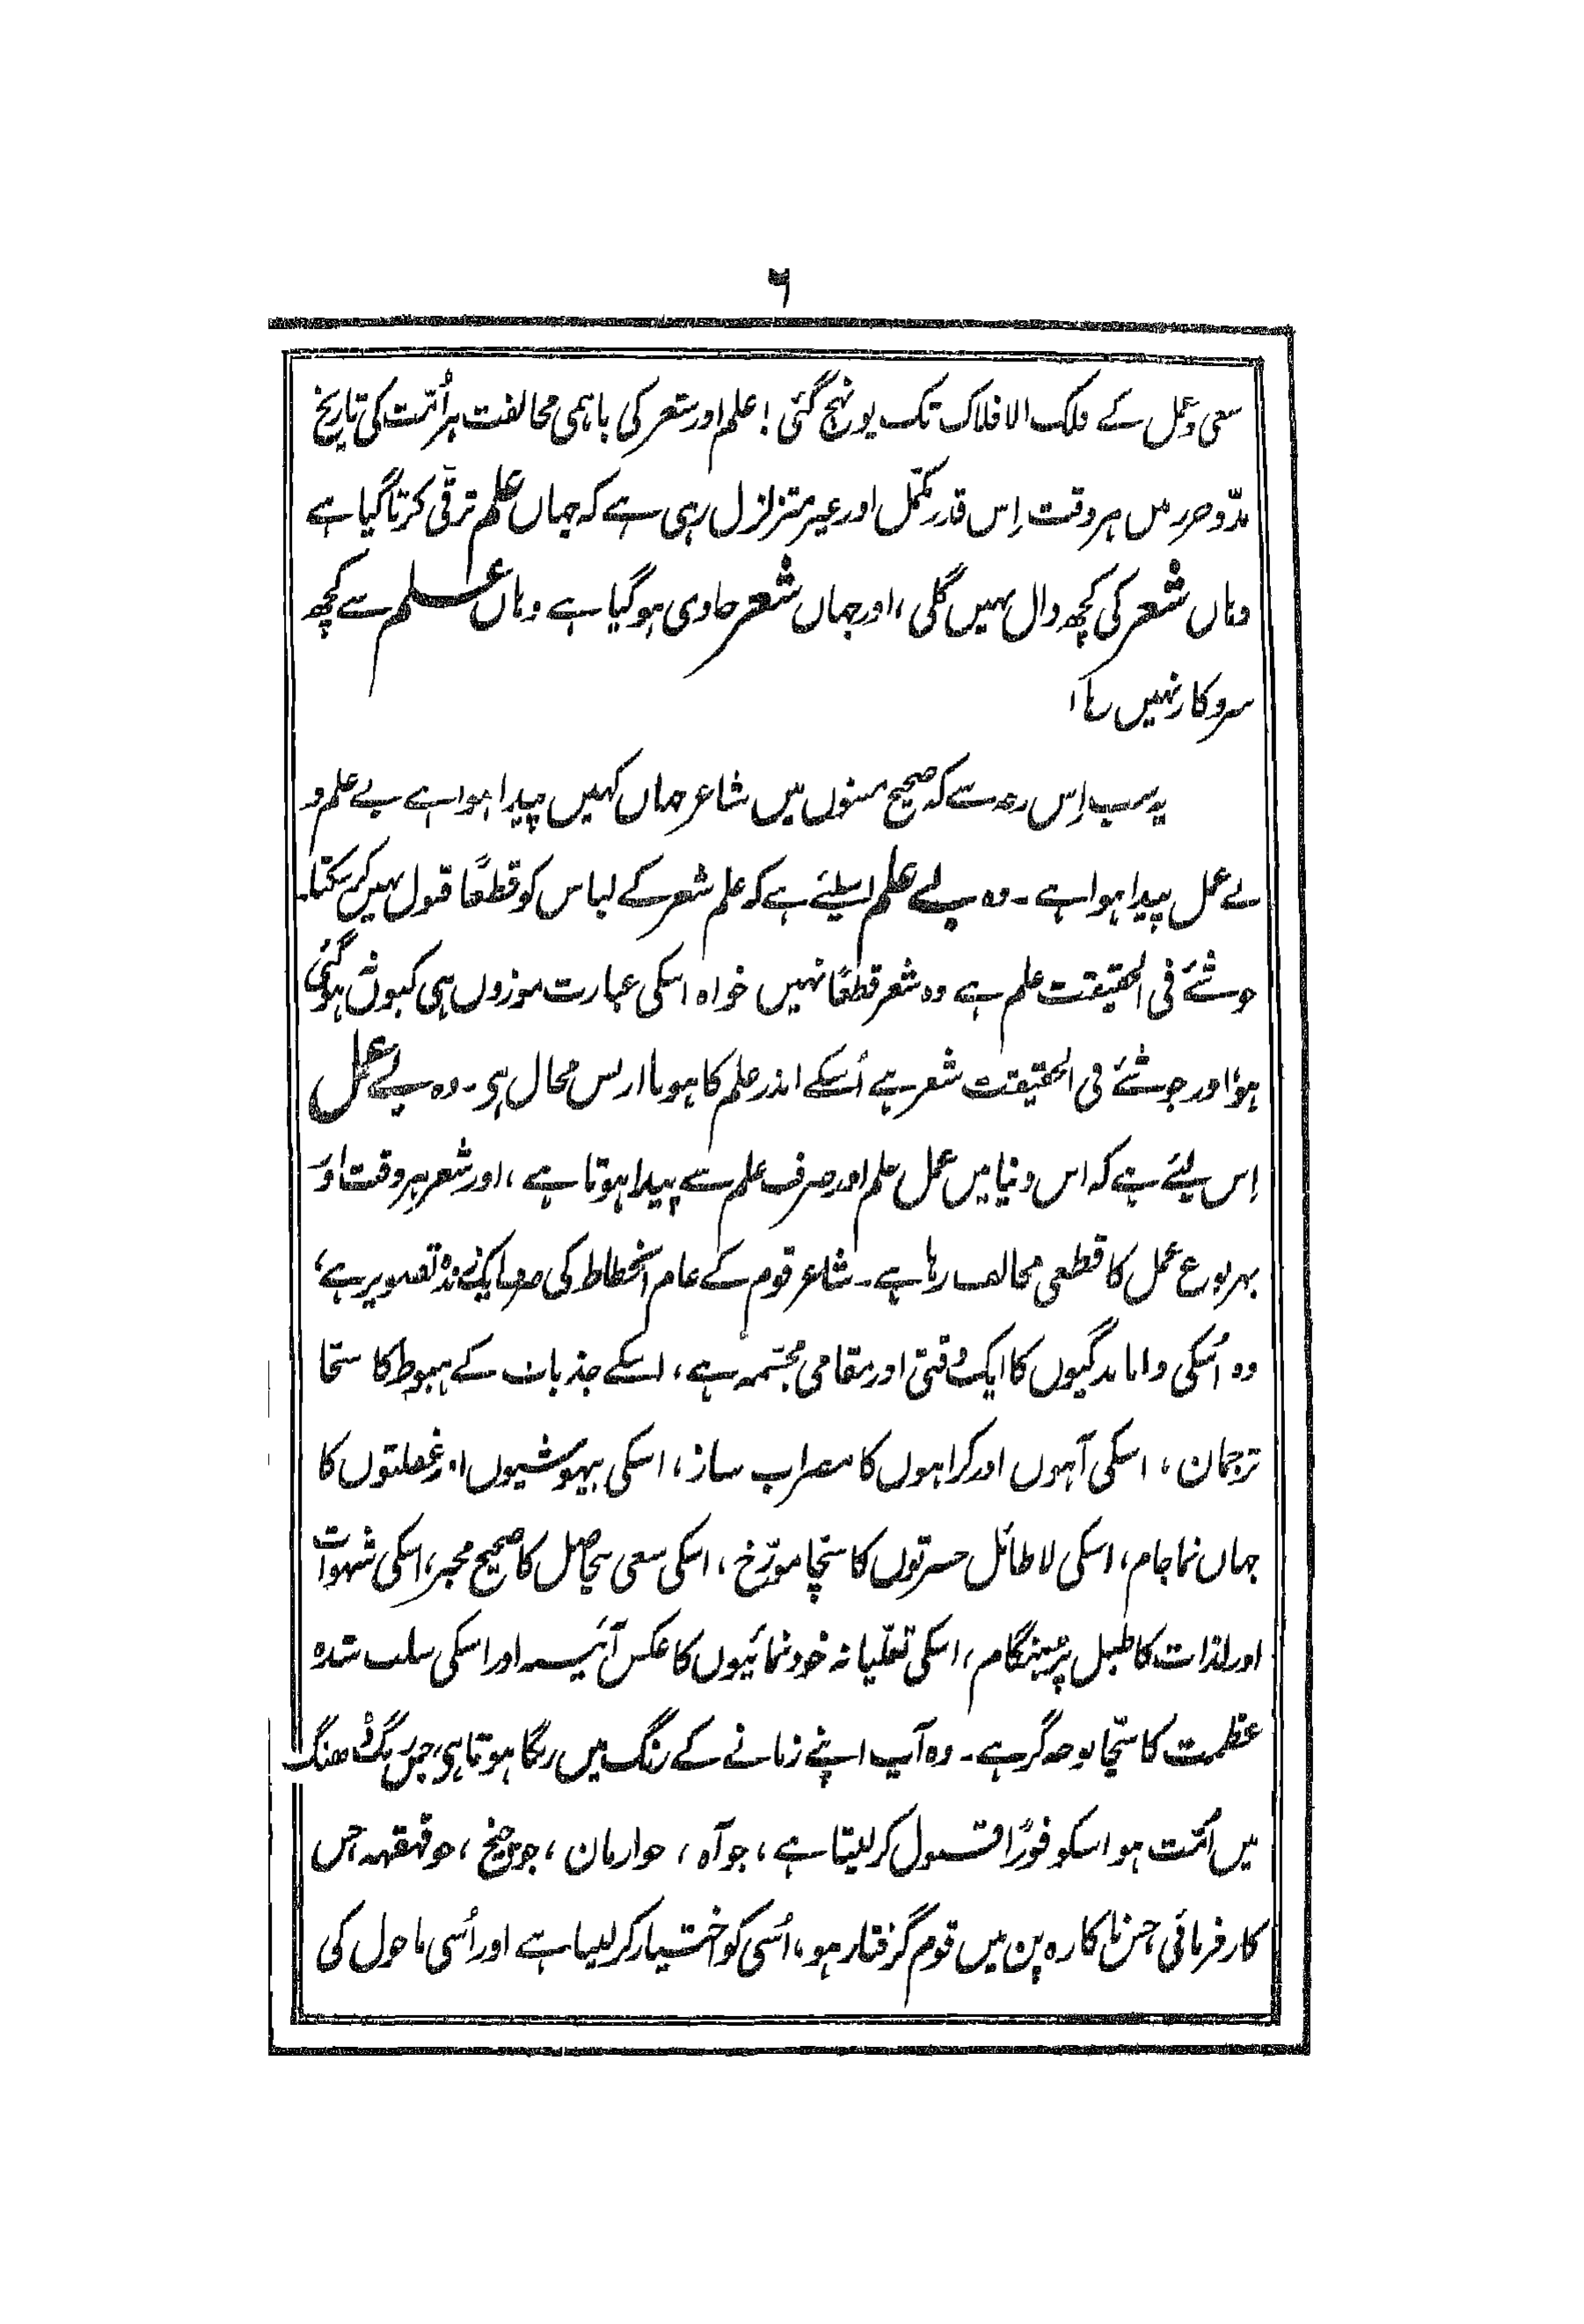 ۶
سعی وعمل کے فلک الافلاک تک پونہچ گئی! علم اور شعر کی باہمی مخالفت ہر اُمّت کی تاریخ
مدّوجزر میں ہر وقت اِس قدر مکمّل اور غیر متزلزل رہی ہے کہ جہاں علم ترقی کرتا گیا ہے
وہاں شعر کی کچھ دال نہیں گلی، اور جہاں شعر حاوی ہوگیا ہے وہاں علم سے کچھ
سروکار نہیں رہا!
یہ سب اِس وجہ سے کہ صحیح معنوں میں شاعر جہاں کہیں پیدا ہوا ہے بے علم و
بے عمل پیدا ہوا ہے۔ وہ بے علم اسلئے ہے کہ علم شعر کے لباس کو قطعًا قبول نہیں کرسکتا۔
جو شئے فی الحقیقت علم ہے وہ شعر قطعًا نہیں خواہ اسکی عبارت موزوں ہی کیوں نہ ہوگئی
ہو، اور جو شئے فی الحقیقت شعر ہے اُسکے اندر علم کا ہونا از بس محال ہی۔ وہ بے عمل
اِس لیئے ہے کہ اس دنیا میں عمل علم اور صرف علم سے پیدا ہوتا ہے، اور شعر ہر وقت اور
بہر نوع عمل کا قطعی مخالف رہا ہے۔ شاعر قوم کے عام انحطاط کی صرف ایک زندہ تصویر ہے،
وہ اُسکی واماندگیوں کا ایک وقتی اور مقامی مجسّمہ ہے، اسکے جذبات کے ہبوط کا سچّا
ترجمان، اسکی آہوں اور کراہوں کا مضراب ساز، اسکی بیہوشیوں اور غفلتوں کا
جہاں نما جام، اسکی لاطائل حسرتوں کا سچّا مورّخ، اسکی سعی بیحاصل کا صحیح مخبر، اسکی شہوات
اور لذات کا طبل پُرہنگام، اسکی تعلّیانہ خودنمائیوں کا عکس آئینہ اور اسکی سلب شدہ
عظمت کا سچّا نوحہ گر ہے۔ وہ آپ اپنے زمانے کے رنگ میں رنگا ہوتا ہی، جس رنگ ڈھنگ
میں اُمّت ہو اسکو فورًا قبول کرلیتا ہے، جو آہ، جو ارمان، جو چیخ، جو قہقہہ جس
کارفرمائی جس ناکارہ پن میں قوم گرفتار ہو، اُسی کو اختیار کرلیتا ہے اور اُسی ماحول کی